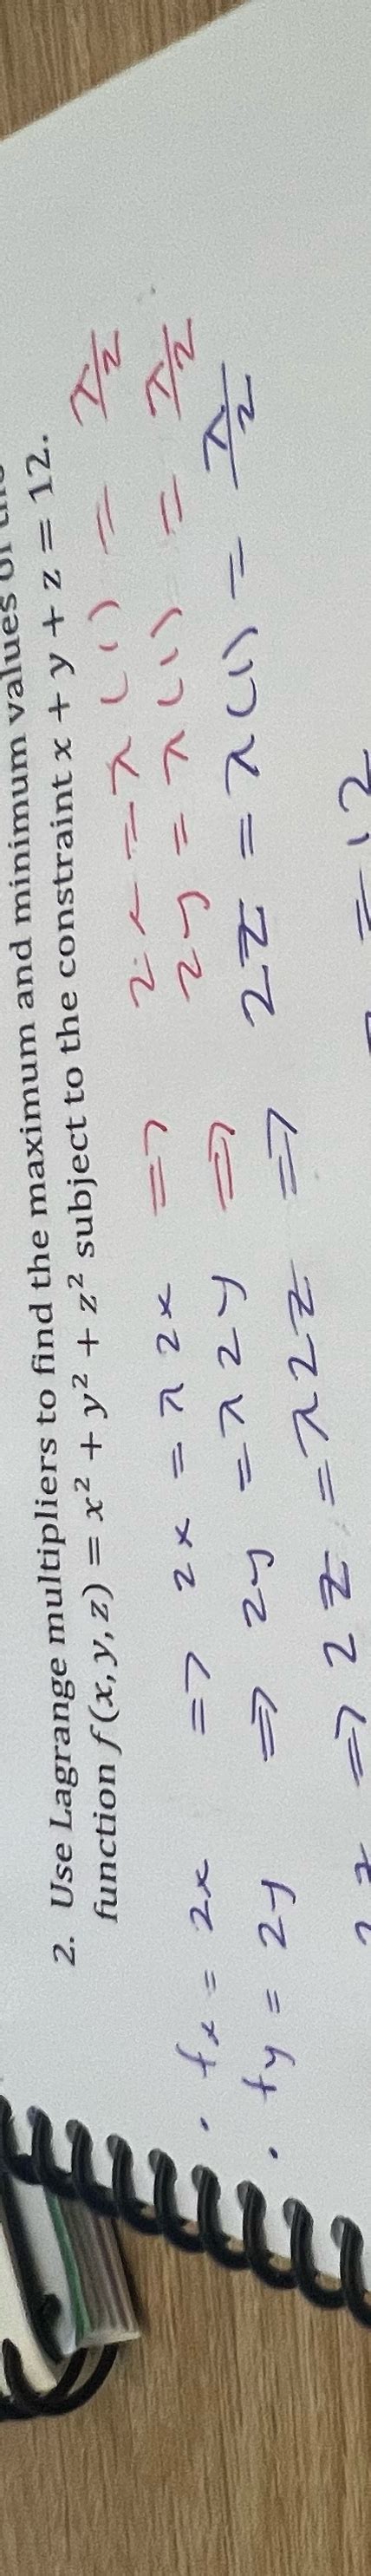 2. Use Lagrange multipliers to find the maximum and minimum values of the
function f(x, y, z) = x² + y² + z² subject to the constraint x + y + z = 12.
· fx = 2x => 2x = λ2x => 2x = λ(1) = λ/2
· fy = 2y => 2y = λ2y => 2y = λ(1) = λ/2
=> 2z = λ2z => 2z = λ(1) = λ/2
= 12